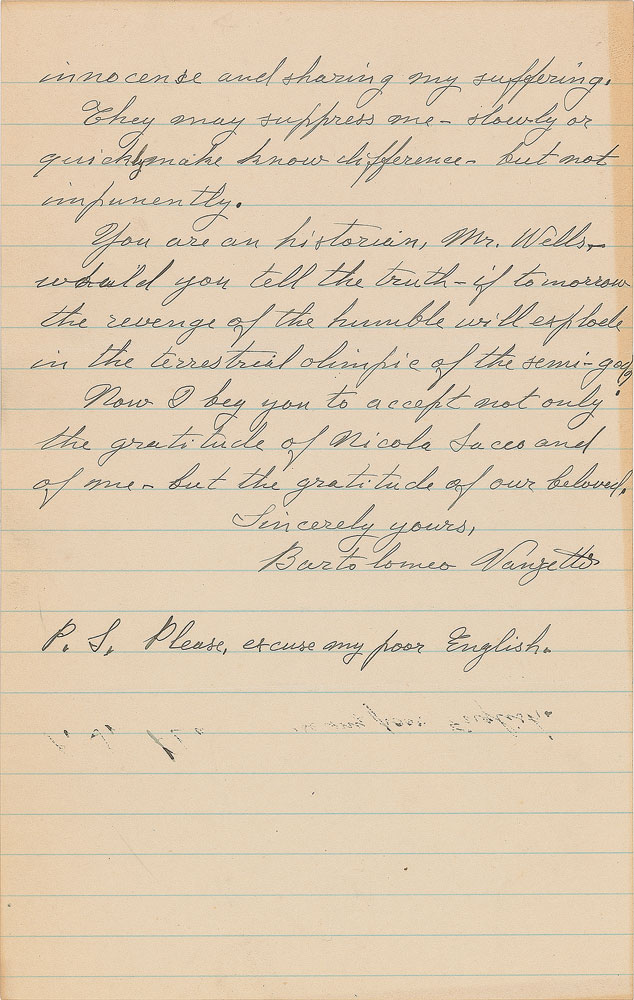 innocense and sharing my suffering.
They may suppress me - slowly or
quickly make know difference - but not
impunently.
You are an historian, Mr. Wells,
would you tell the truth - if tomorrow
the revenge of the humble will explode
in the terrestrial olimpic of the semi-god?
Now I beg you to accept not only
the gratitude of Nicola Sacco and
of me - but the gratitude of our beloved.
Sincerely yours,
Bartolomeo Vanzetti
P. S. Please, excuse my poor English.